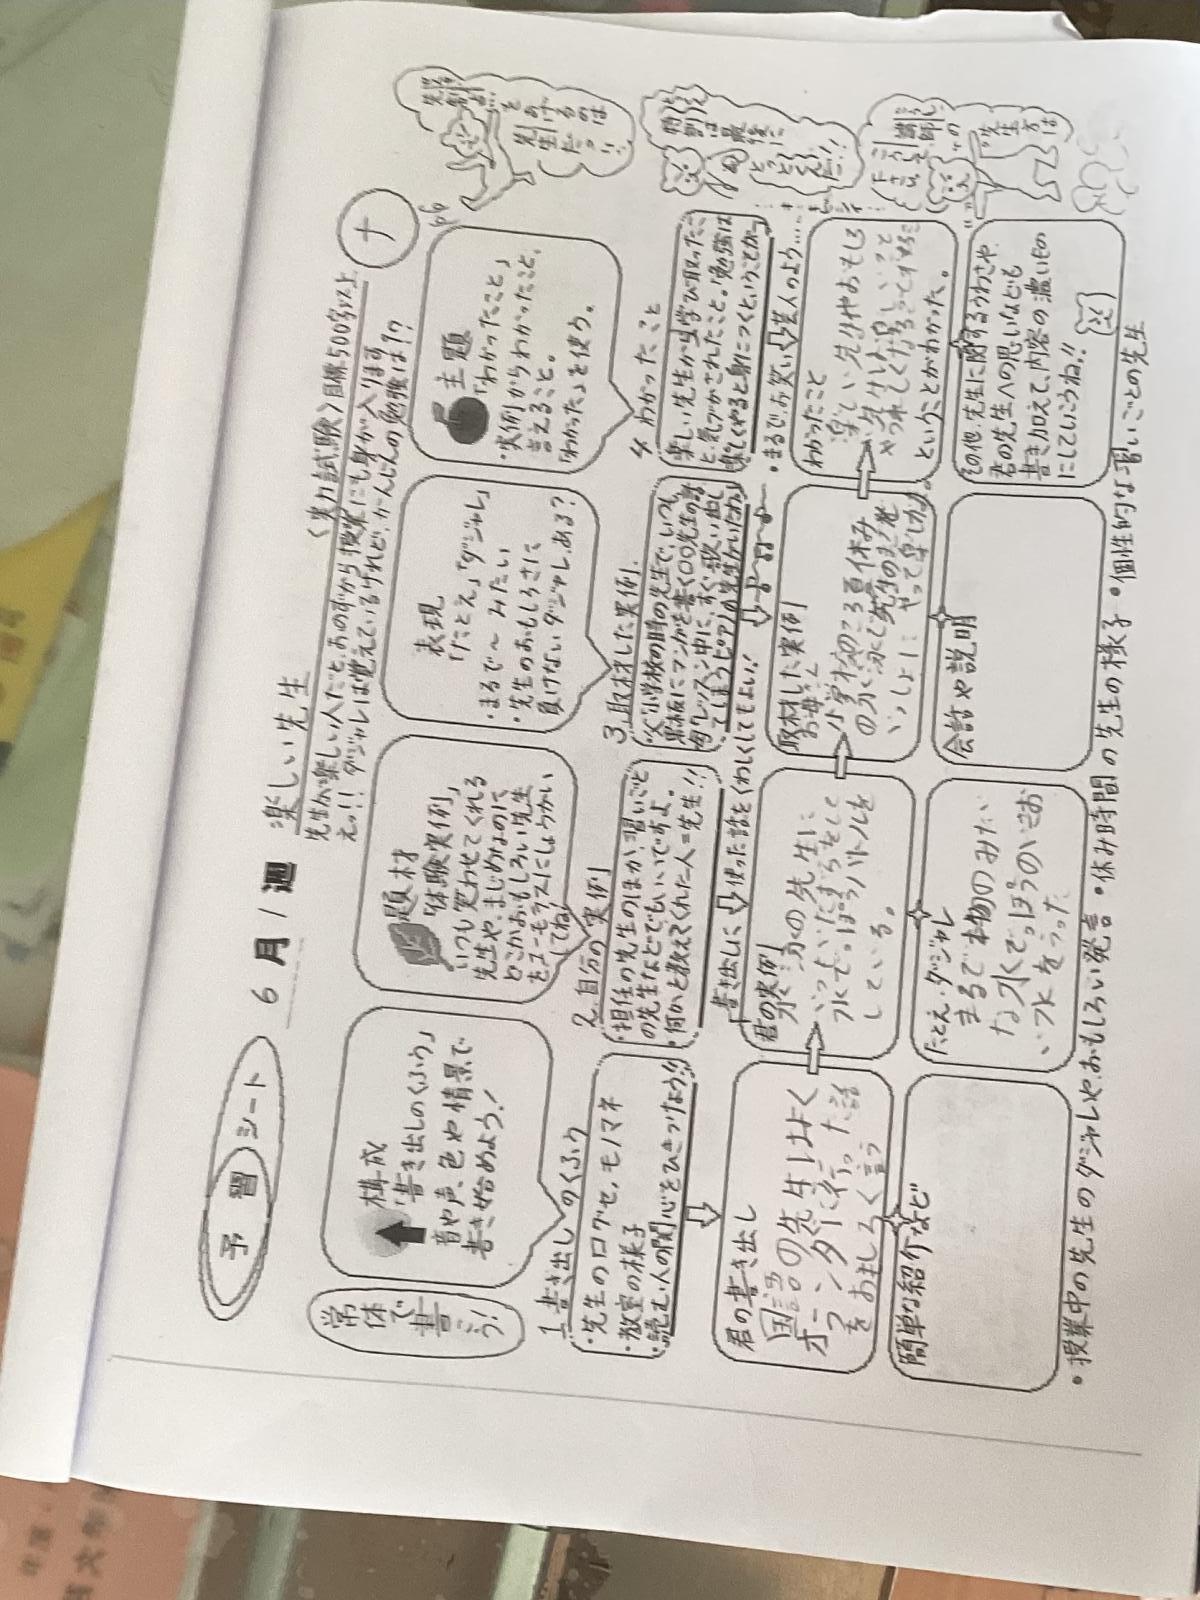 予習シート
6月1週
楽しい先生
〈実力試験〉目標500字以上
ナ
先生が楽しい人だと、おのずから授業にも身が入ります
ねえっ!! ダジャレは覚えているけれど、かんじんの勉強は??
常体で書こう!
構成
「書き出しのくふう」
音や声、色や情景で
書き始めよう!
題材
「体験実例」
いつも笑わせてくれる
先生や、まじめなのに
どこかおもしろい先生
をユーモラスにしょうかい
してね!
表現
「たとえ」「ダジャレ」
・まるで〜みたい
・先生のおもしろさに
負けないダジャレ、ある?
主題
「わかったこと」
・実例からわかったこと、
言えること。
「わかった」を使う。
1 書き出しのくふう
・先生の口グセ、モノマネ
・教室の様子
・読む人の関心をひきつけよう!!
2 自分の実例
・担任の先生のほか、習いごと
の先生などでもいいですよ。
・何かを教えてくれた人=先生!!
3 取材した実例
・父「小学校の時の先生で、いつも
黒板にマンガを書く〇〇先生の
・母「レッスン中に、すぐ歌い出し
てしまうピアノの先生がいたわ」
4 わかったこと
楽しい先生から学び取ったこ
と、気づかされたこと。「勉強は
楽しくやると身につくということが」
「書き出しに使った話をくわしくしてもよい!
・まるでお笑い芸人のよう……
君の書き出し
国語の先生はよく
オーランダに行った話
をおもしろく言う
君の実例
水泳の先生に
いっぱいいたずらをして
水でっぽうバトルを
している。
取材した実例
お母さん
小学校初ごろ夏休み
の水泳で先生のまねを
いっしょにやって楽しかった。
わかったこと
楽しい先生やおもしろ
い先生がいると楽しいこと
ということがわかった。
簡単な紹介など
たとえ・ダジャレ
まるで本物のみたい
な水でっぽうのいきお
い水をうった
会話や説明
その他、先生に関するうわさや、
君の先生への思いなども
書き加えて、内容の濃いもの
にしていこうね!!
・授業中の先生のダジャレや、おもしろい発言 ・休み時間の先生の様子 ・個性的な習いごとの先生